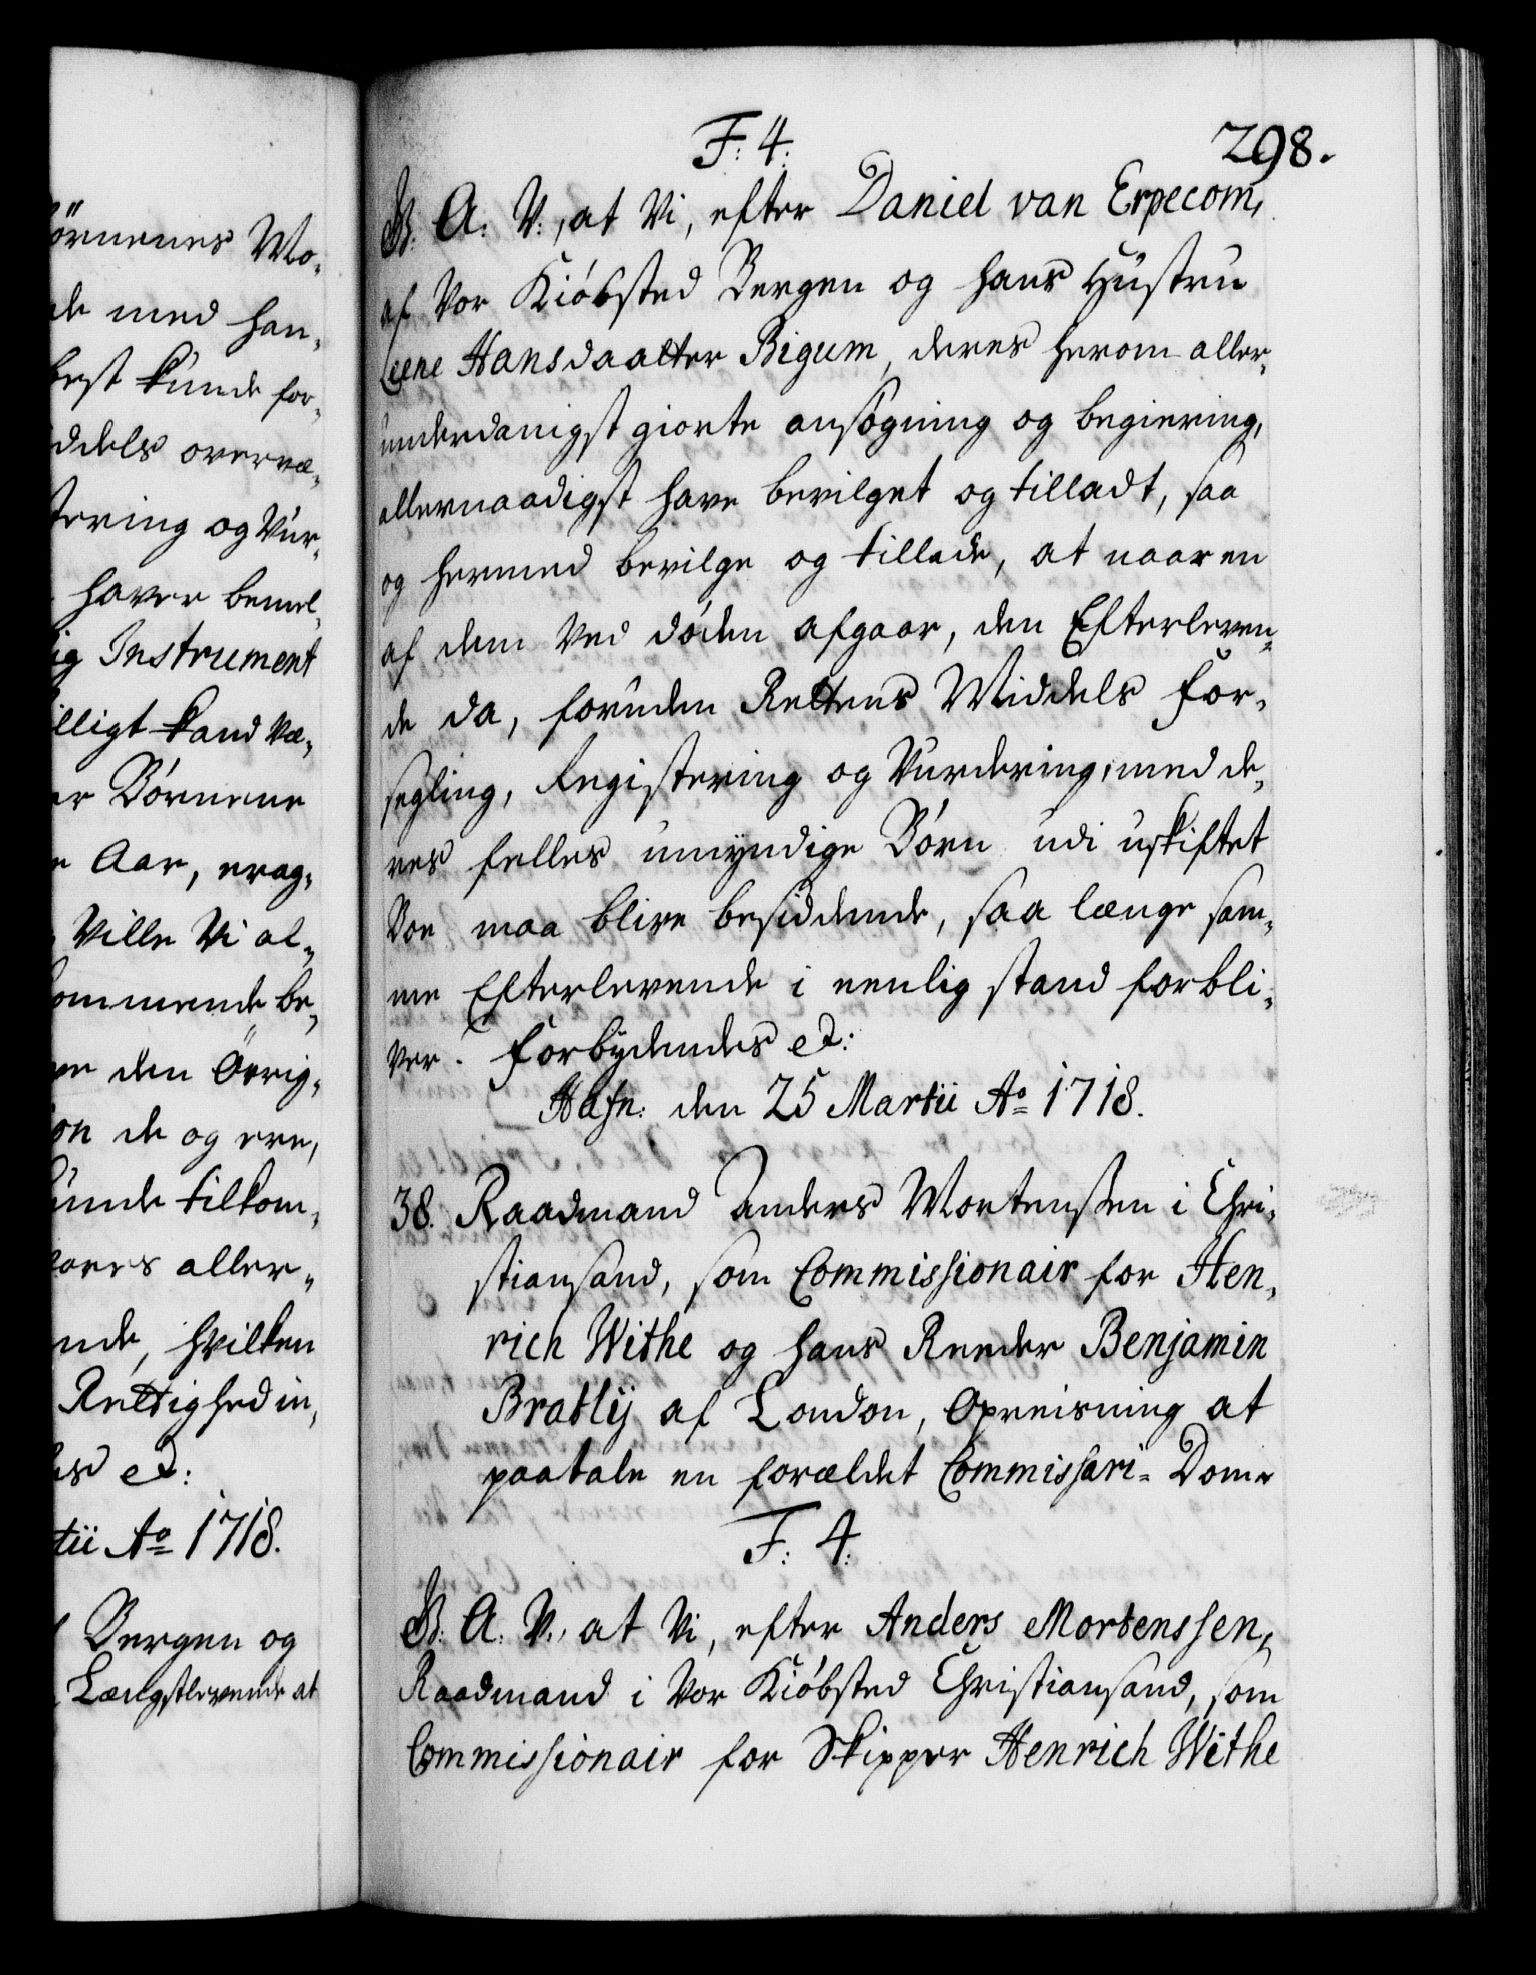 ørnenes Mo-
de med han-
best kunde for-
iddels overvæ-
tering og Vur-
haver bemel-
ig Instrument
illigt kand væ-
er Børnene
e Aar, erag-
Ville Vi al-
kommende be-
den Øvrig-
on de og ere,
kunde tilkom-
vores aller-
nde, hvilken
Rettighed in-
es etc:
tii Ao 1718.
Bergen og
Længstlevende at
298.
F: 4:
G. A. V:, at Vi, efter Daniel van Erpecom,
af Vor Kiøbsted Bergen og hans Hustru
Liene Hansdaatter Bigum, deres herom aller-
underdanigst giorte ansøgning og begiering,
allernaadigst have bevilget og tilladt, saa
og hermed bevilge og tillade, at naar en
af dem Ved døden afgaar, den Efterleven-
de da, foruden Rettens Middels For-
segling, Registering og Vurdering, med de-
res felles umyndige Børn udi uskiftet
Boe maa blive besiddende, saa længe sam-
me Efterlevende i eenlig stand forbli-
ver. Forbydendes etc:
Hafn: den 25 Martii Ao 1718.
38. Raadmand Anders Mortensen i Chri-
stiansand, som Commissionair for Hen-
rich Withe og hans Reeder Benjamin
Bratlij af London, Opreisning at
paatale en forældet Commissari-Dom
F: 4:
G. A. V., at Vi, efter Anders Mortenssen,
Raadmand i Vor Kiøbsted Christiansand, som
Commissionair for Skipper Henrich Withe